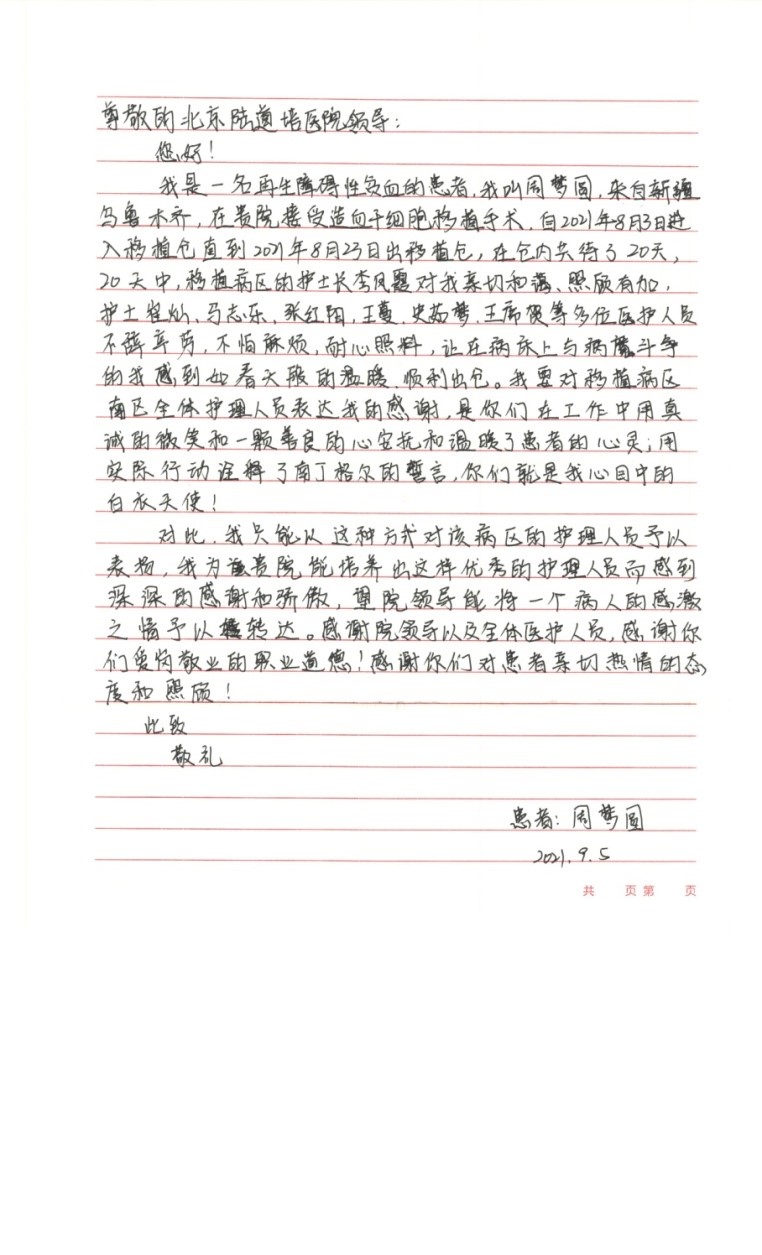 尊敬的北京陆道培医院领导:
您好!
我是一名再生障碍性贫血的患者,我叫周梦圆,来自新疆
乌鲁木齐,在贵院接受造血干细胞移植手术,自2021年8月3日进
入移植仓直到2021年8月23日出移植仓,在仓内共待了20天,
20天中,移植病区的护士长李凤霞对我亲切和蔼、照顾有加,
护士崔灿、马志东、张红阳、王蔓、史茹梦、王席贺等多位医护人员
不辞辛劳,不怕麻烦,耐心照料,让在病床上与病魔斗争
的我感到如春天般的温暖、顺利出仓。我要对移植病区
南区全体护理人员表达我的感谢,是你们在工作中用真
诚的微笑和一颗善良的心安抚和温暖了患者的心灵;用
实际行动诠释了南丁格尔的誓言,你们就是我心目中的
白衣天使!
对此,我只能以这种方式对该病区的护理人员予以
表扬,我为贵院能培养出这样优秀的护理人员而感到
深深的感谢和骄傲,望院领导能将一个病人的感激
之情予以转达。感谢院领导以及全体医护人员,感谢你
们爱岗敬业的职业道德!感谢你们对患者亲切热情的态
度和照顾!
此致
敬礼
患者:周梦圆
2021.9.5
共 页 第 页